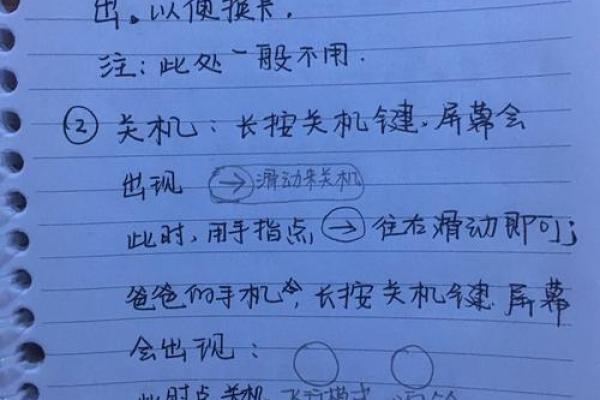 出。以便换卡。
注：此处一般不用.
② 关机：长按关机键、屏幕会
出现 → 滑动来关机
此时、用手指点 → 往右滑动即可；
爸爸的手机，长按关机键 屏幕
会出现：
此时点关机 飞行模式